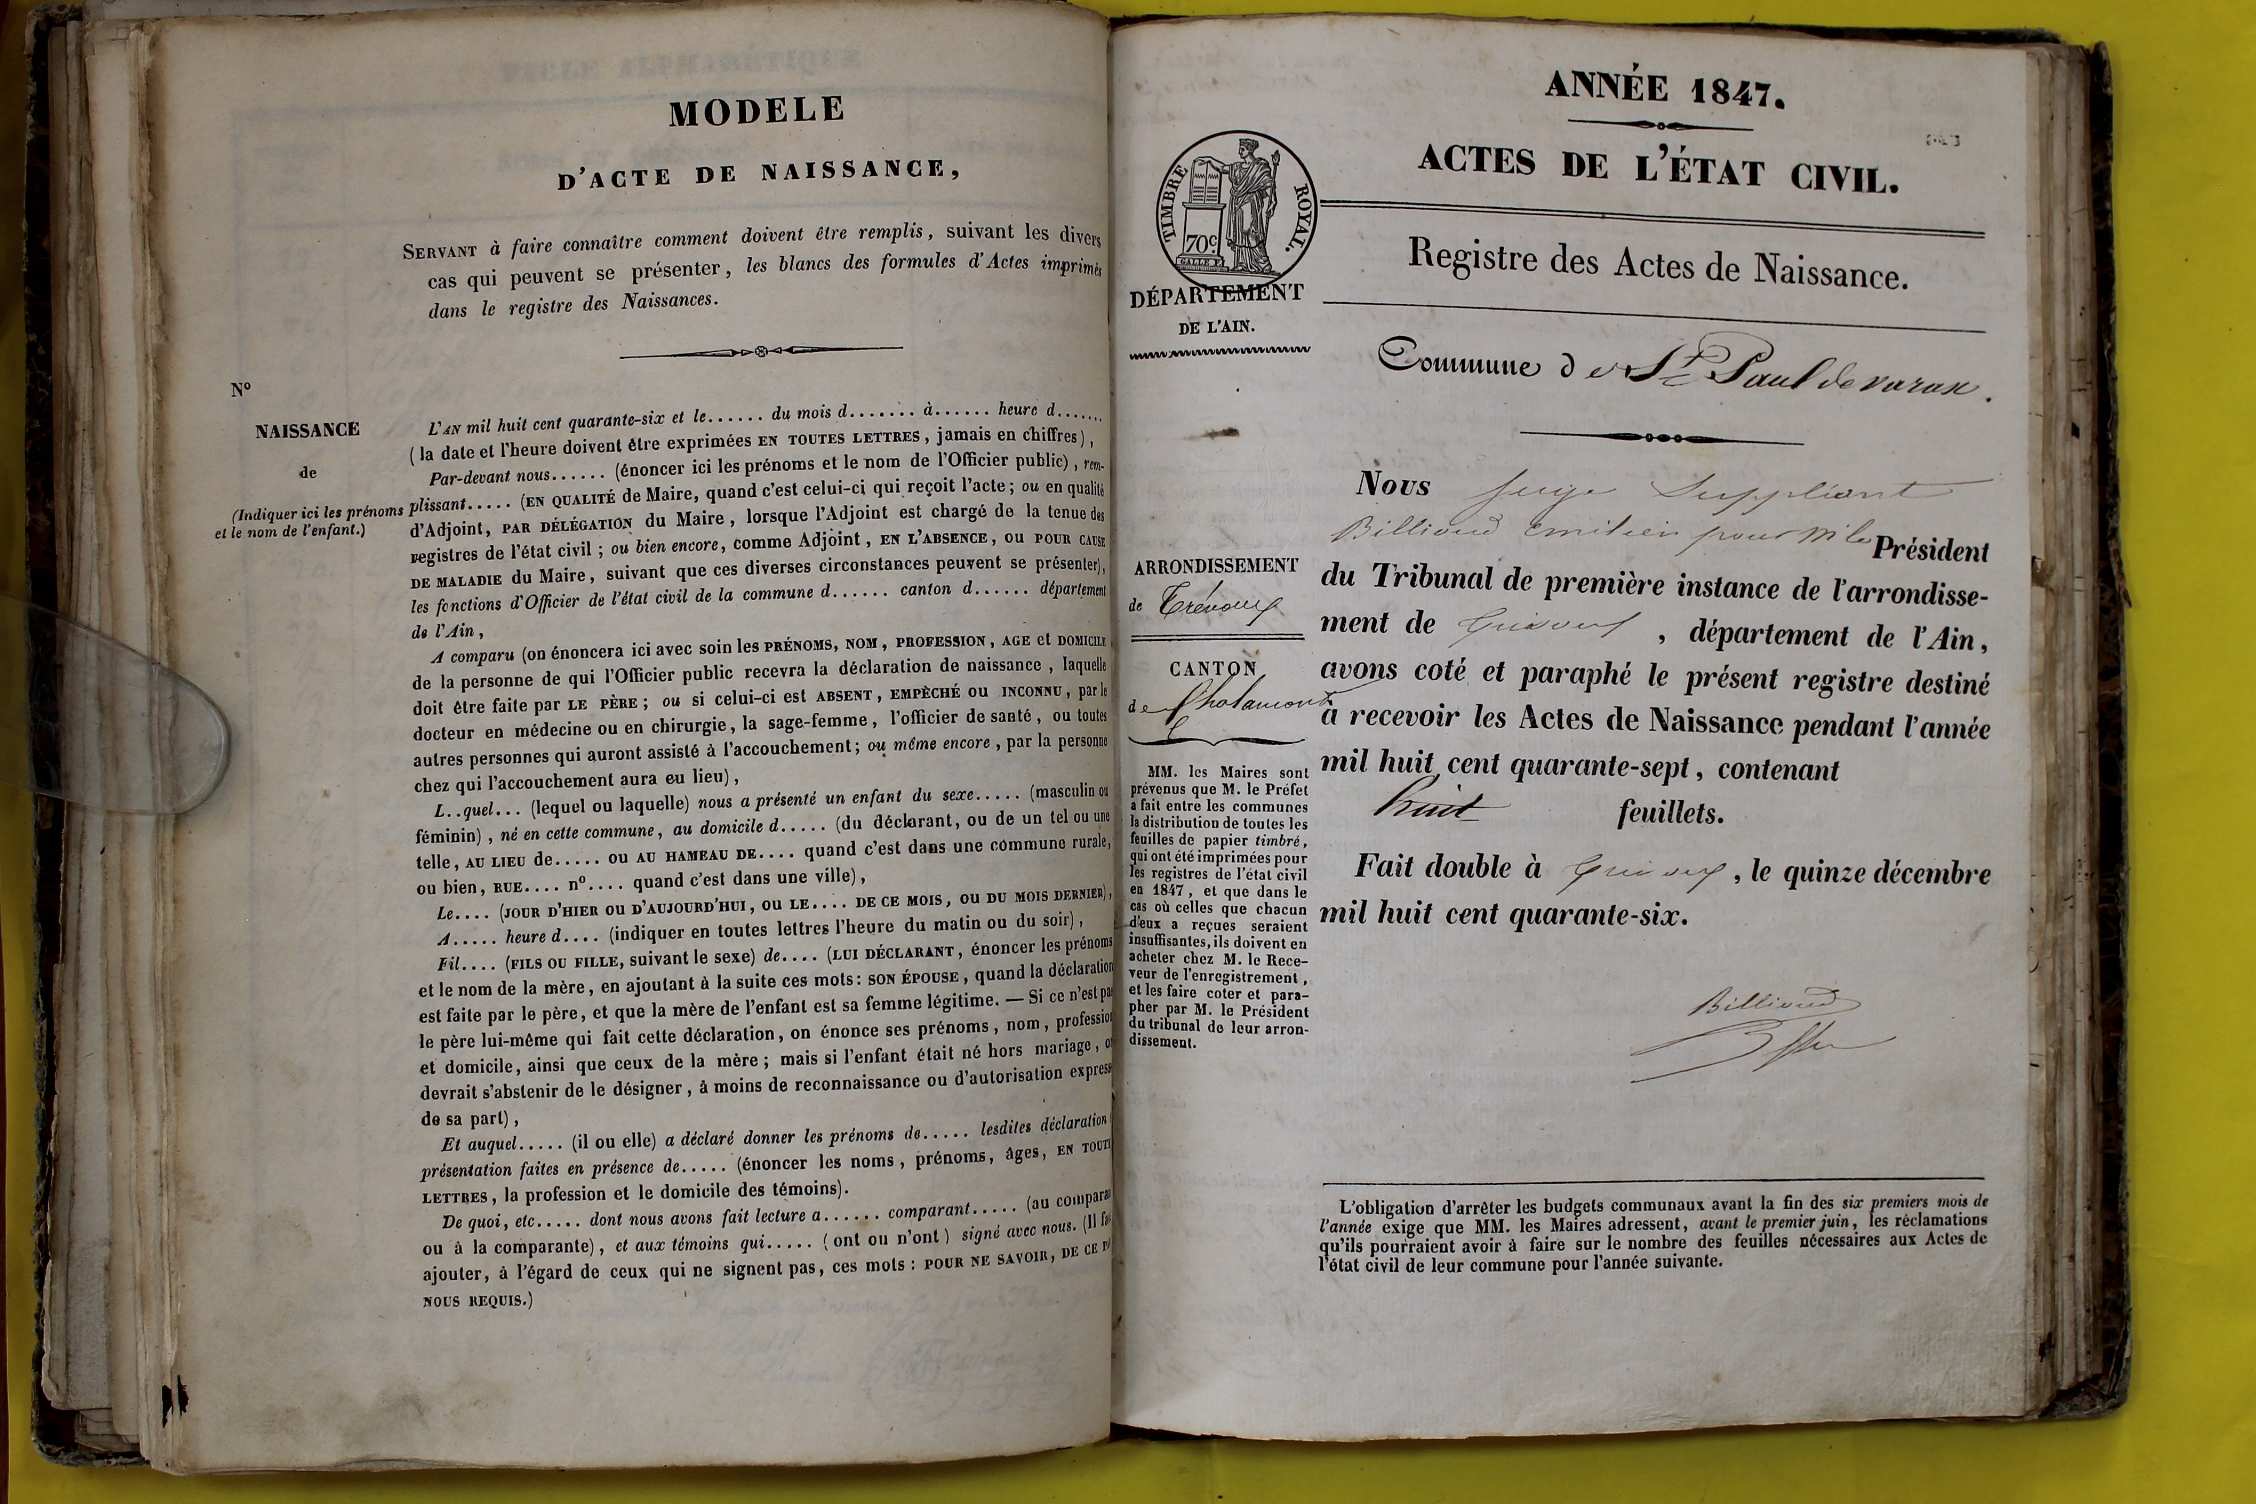 MODELE
D'ACTE DE NAISSANCE,
SERVANT à faire connaître comment doivent être remplis, suivant les divers
cas qui peuvent se présenter, les blancs des formules d'Actes imprimés
dans le registre des Naissances.
No
NAISSANCE
de
(Indiquer ici les prénoms
et le nom de l'enfant.)
L'AN mil huit cent quarante-six et le...... du mois d....... à...... heure d.......
(la date et l'heure doivent être exprimées EN TOUTES LETTRES, jamais en chiffres),
Par-devant nous...... (énoncer ici les prénoms et le nom de l'Officier public), rem-
plissant..... (EN QUALITÉ de Maire, quand c'est celui-ci qui reçoit l'acte; ou en qualité
d'Adjoint, PAR DÉLÉGATION du Maire, lorsque l'Adjoint est chargé de la tenue des
registres de l'état civil; ou bien encore, comme Adjoint, EN L'ABSENCE, OU POUR CAUSE
DE MALADIE du Maire, suivant que ces diverses circonstances peuvent se présenter),
les fonctions d'Officier de l'état civil de la commune d...... canton d...... département
de l'Ain,
A comparu (on énoncera ici avec soin les PRÉNOMS, NOM, PROFESSION, AGE et DOMICILE
de la personne de qui l'Officier public recevra la déclaration de naissance, laquelle
doit être faite par LE PÈRE; ou si celui-ci est ABSENT, EMPÊCHÉ ou INCONNU, par le
docteur en médecine ou en chirurgie, la sage-femme, l'officier de santé, ou toutes
autres personnes qui auront assisté à l'accouchement; ou même encore, par la personne
chez qui l'accouchement aura eu lieu),
L..quel... (lequel ou laquelle) nous a présenté un enfant du sexe..... (masculin ou
féminin), né en cette commune, au domicile d..... (du déclarant, ou de un tel ou une
telle, AU LIEU de..... ou AU HAMEAU DE.... quand c'est dans une commune rurale,
ou bien, RUE.... no.... quand c'est dans une ville),
Le.... (JOUR D'HIER OU D'AUJOURD'HUI, OU LE.... DE CE MOIS, OU DU MOIS DERNIER),
A..... heure d.... (indiquer en toutes lettres l'heure du matin ou du soir),
Fil.... (FILS OU FILLE, suivant le sexe) de.... (LUI DÉCLARANT, énoncer les prénoms
et le nom de la mère, en ajoutant à la suite ces mots: SON ÉPOUSE, quand la déclaration
est faite par le père, et que la mère de l'enfant est sa femme légitime. — Si ce n'est pas
le père lui-même qui fait cette déclaration, on énonce ses prénoms, nom, profession
et domicile, ainsi que ceux de la mère; mais si l'enfant était né hors mariage, o
devrait s'abstenir de le désigner, à moins de reconnaissance ou d'autorisation express
de sa part),
Et auquel..... (il ou elle) a déclaré donner les prénoms de..... lesdites déclaration
présentation faites en présence de..... (énoncer les noms, prénoms, âges, EN TOUTE
LETTRES, la profession et le domicile des témoins).
De quoi, etc..... dont nous avons fait lecture a...... comparant..... (au comparan
ou à la comparante), et aux témoins qui..... (ont ou n'ont) signé avec nous. (Il fa
ajouter, à l'égard de ceux qui ne signent pas, ces mots: POUR NE SAVOIR, DE CE
NOUS REQUIS.)
ANNÉE 1847.
ACTES DE L'ÉTAT CIVIL.
TIMBRE ROYAL.
70c
Registre des Actes de Naissance.
DÉPARTEMENT
DE L'AIN.
Commune de St Paul de varax.
Nous juge suppléant
Billioud Emilien pour Mr le Président
du Tribunal de première instance de l'arrondisse-
ment de Trévoux, département de l'Ain,
avons coté et paraphé le présent registre destiné
à recevoir les Actes de Naissance pendant l'année
mil huit cent quarante-sept, contenant
huit feuillets.
Fait double à Trévoux, le quinze décembre
mil huit cent quarante-six.
Billioud
ARRONDISSEMENT
de Trévoux
CANTON
de Chalamont
MM. les Maires sont
prévenus que M. le Préfet
a fait entre les communes
la distribution de toutes les
feuilles de papier timbré,
qui ont été imprimées pour
les registres de l'état civil
en 1847, et que dans le
cas où celles que chacun
d'eux a reçues seraient
insuffisantes, ils doivent en
acheter chez M. le Rece-
veur de l'enregistrement,
et les faire coter et para-
pher par M. le Président
du tribunal de leur arron-
dissement.
L'obligation d'arrêter les budgets communaux avant la fin des six premiers mois de
l'année exige que MM. les Maires adressent, avant le premier juin, les réclamations
qu'ils pourraient avoir à faire sur le nombre des feuilles nécessaires aux Actes de
l'état civil de leur commune pour l'année suivante.